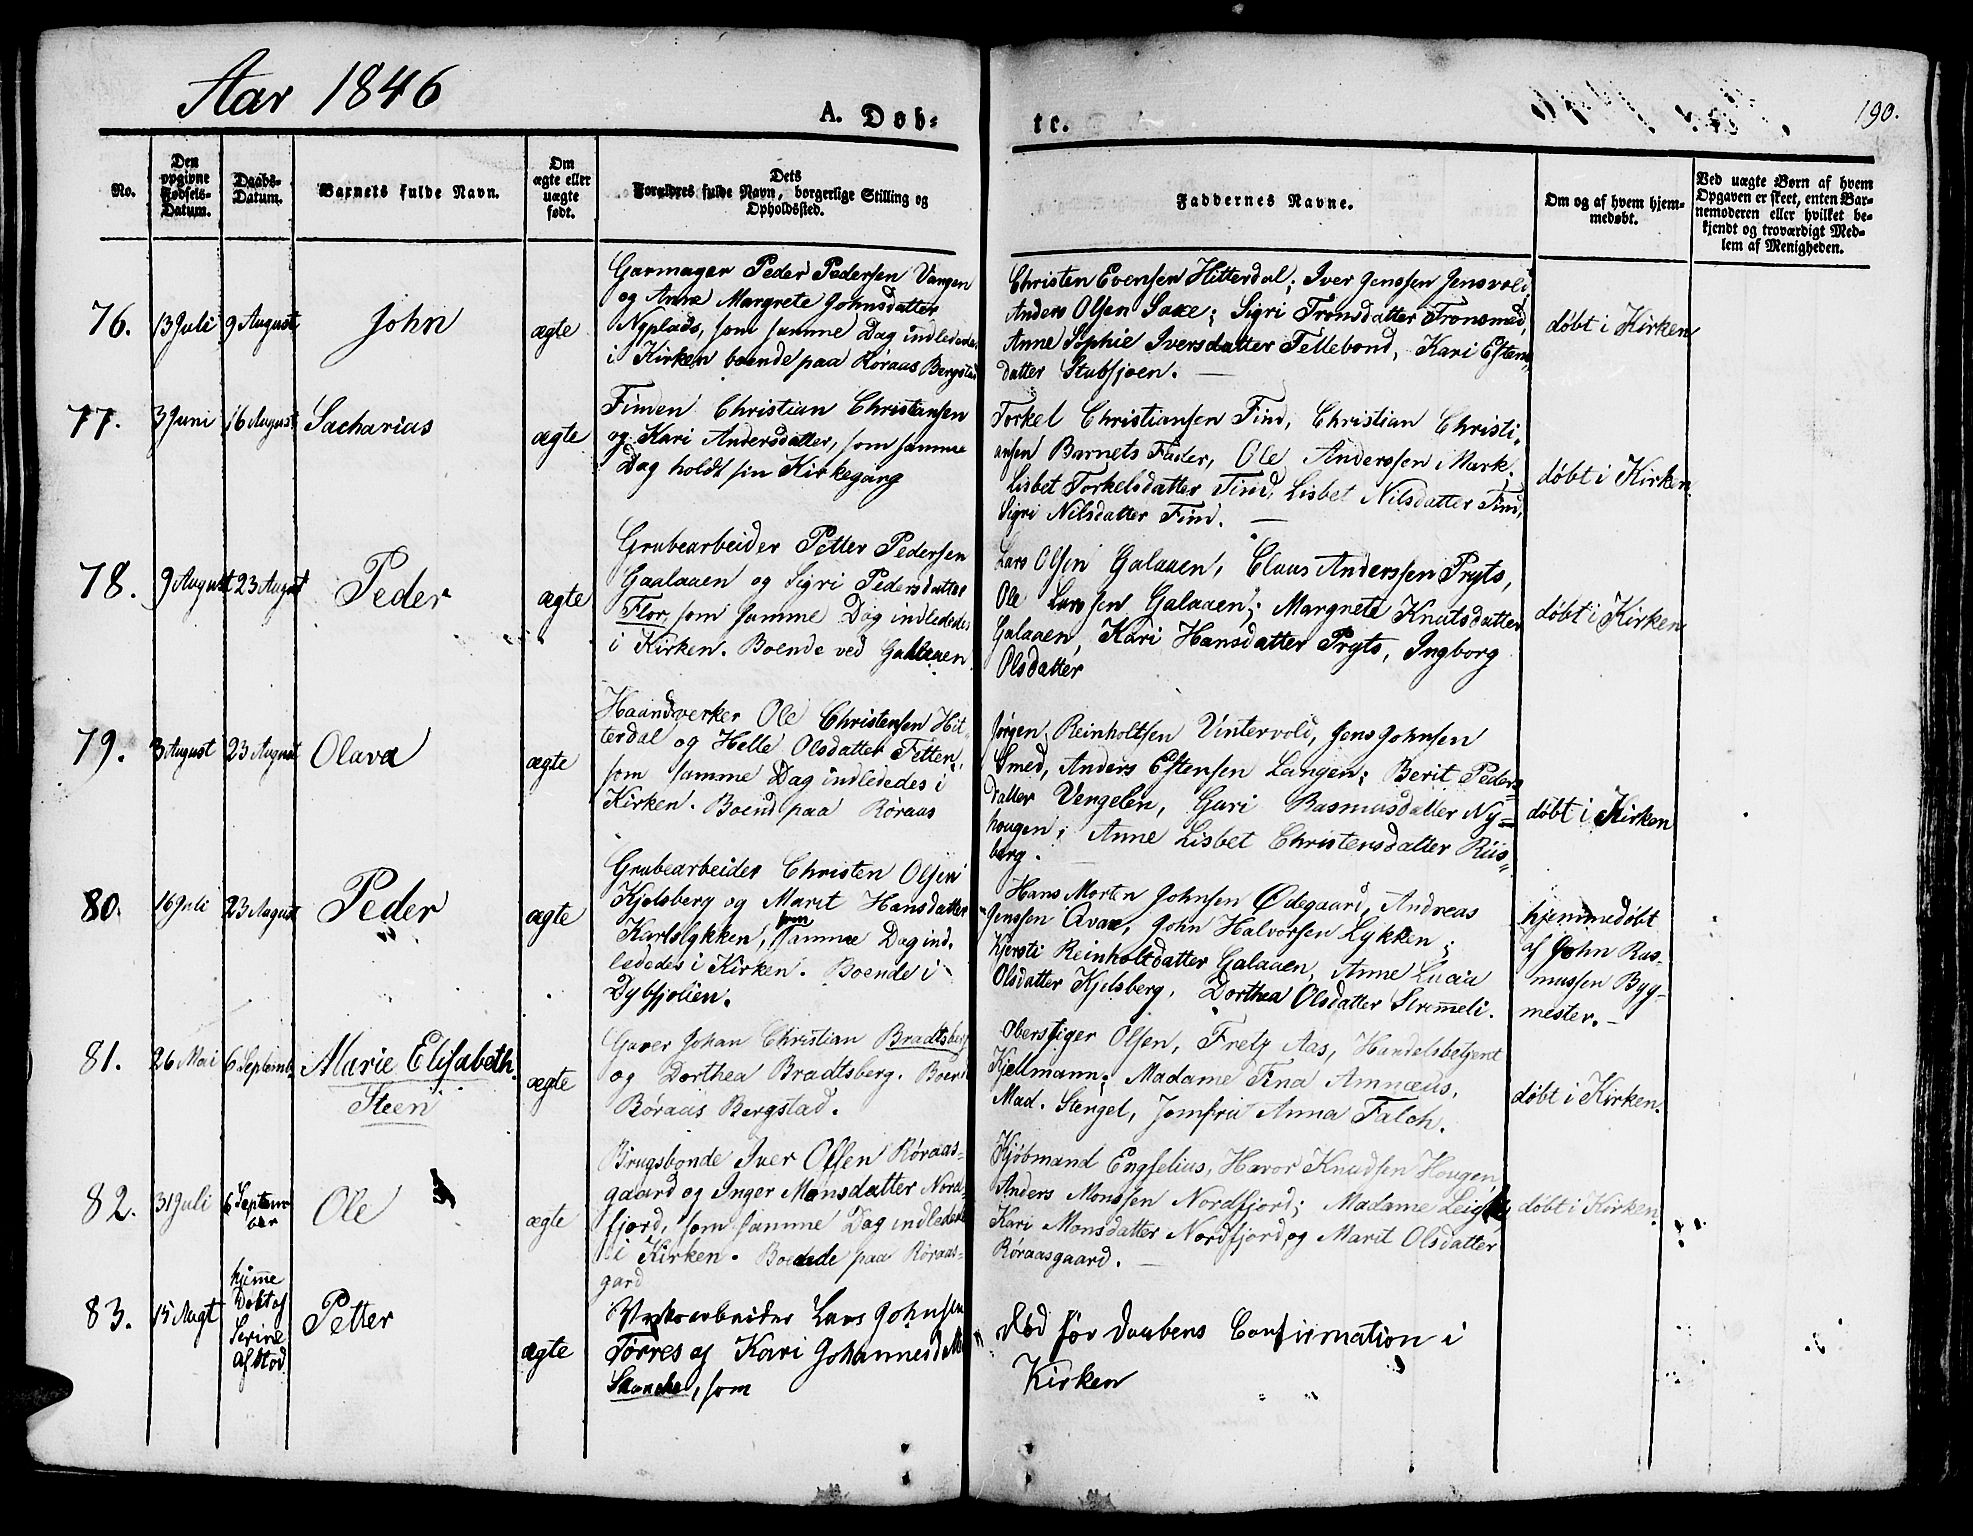 Aar 1846
A. Døb-
te.
190.
No.
Den
opgivne
Fødsels-
Datum.
Daabs-
Datum.
Barnets fulde Navn.
Om
ægte eller
uægte
født.
Dets
Forældres fulde Navn, borgerlige Stilling og
Opholdssted.
Faddernes Navne.
Om og af hvem hjem-
medøbt.
Ved uægte Børn af hvem
Opgaven er skeet, enten Bar-
nemoderen eller hvilket be-
kjendt og troværdigt Med-
lem af Menigheden.
76. 13 Juli 9 August John ægte
Garmager Peder Pedersen Vangen
og Anne Margrete Johnsdatter
Nyplads, som samme Dag indlededes
i Kirken boende paa Røraas Bergstad
Christen Evensen Hitterdal; Iver Jenssen Jensvold
Anders Olsen Saxe; Sigri Tronsdatter Tronsmed,
Anne Sophie Iversdatter Tellebond, Kari Estens
datter Stubsjoen. —
døbt i Kirken
77. 3 Juni 16 August Sacharias ægte
Finden Christian Christiansen
og Kari Andersdatter, som samme
Dag holdt sin Kirkegang
Torkel Christiansen Find, Christian Christi-
ansen Barnets Fader, Ole Anderssen Mark,
Lisbet Torkelsdatter Find, Lisbet Nilsdatter Find,
Sigri Nilsdatter Find. —
døbt i Kirken.
78. 9 August 23 August Peder ægte
Grubearbeider Petter Pedersen
Gaalaaen og Sigri Pedersdatter
Flor, som samme Dag indlededes
i Kirken. Boende ved Galaaen
Lars Olsen Galaaen, Claus Anderssen Pryts,
Ole Larssen Galaaen; Margrete Knutsdatter
Galaaen, Kari Hansdatter Pryts, Ingborg
Olsdatter
døbt i Kirken
79. 3 August 23 August Olava ægte
Haandverker Ole Christensen Hit-
terdal og Helle Olsdatter Fetten,
som samme Dag indlededes i
Kirken. Boend paa Røraas
Jørgen Reinholtsen Vintervold, Jens Johnsen
Smed, Anders Estensen Langen; Berit Peders-
datter Vengelen, Guri Rasmusdatter Ny-
hougen; Anne Lisbet Christensdatter Riis-
berg. —
døbt i Kirken
80. 16 Juli 23 August Peder ægte
Grubearbeider Christen Olsen
Kjelsberg og Marit Hansdatter
som
Karlslykken, samme Dag ind-
lededes i Kirken. Boende i
Dybsjolien.
Hans Morten Johnsen Ødegaard, Andreas
Jenssen Avax, John Halvorsen Lykken;
Kjersti Reinholtdatter Galaaen, Anne Lucia
Olsdatter Kjelsberg, Dorthea Olsdatter Strømmeli.
hjemmedøbt
af John Ras-
mussen Byg-
mester. —
81. 26 Mai 6 Septemb. Marie Elisabeth
Steen
ægte
Garver Johan Christian Bradtsberg
og Dorthea Bradtsberg. Boende
Røraas Bergstad.
Oberstiger Olsen, Fretz Aas, Handelsbetjent
Kjellmann; Madame Tina Amnæus,
Mad. Stengel, Jomfru Anna Falch.
døbt i Kirken.
82. 31 Juli 6 Septem-
ber
Ole ægte
Brugsbonde Iver Olsen Røraas-
gaard og Inger Monsdatter Nord-
fjord, som samme Dag indlededes
i Kirken. Boende paa Røraas-
gard
Kjøbmand Engselius, Havor Knudsen Hougen,
Anders Monssen Nordfjord; Madame
Kari Monsdatter Nordfjord, og Marit Olsdatter
Røraasgaard. —
døbt i Kirken.
83. 15 Augt
hjemme
Døbt af
Serine
Afstød
Petter ægte
Lars Johnsen
Torres og Kari Johannesd.
, som
Død før Daabens Confirmation i
Kirken